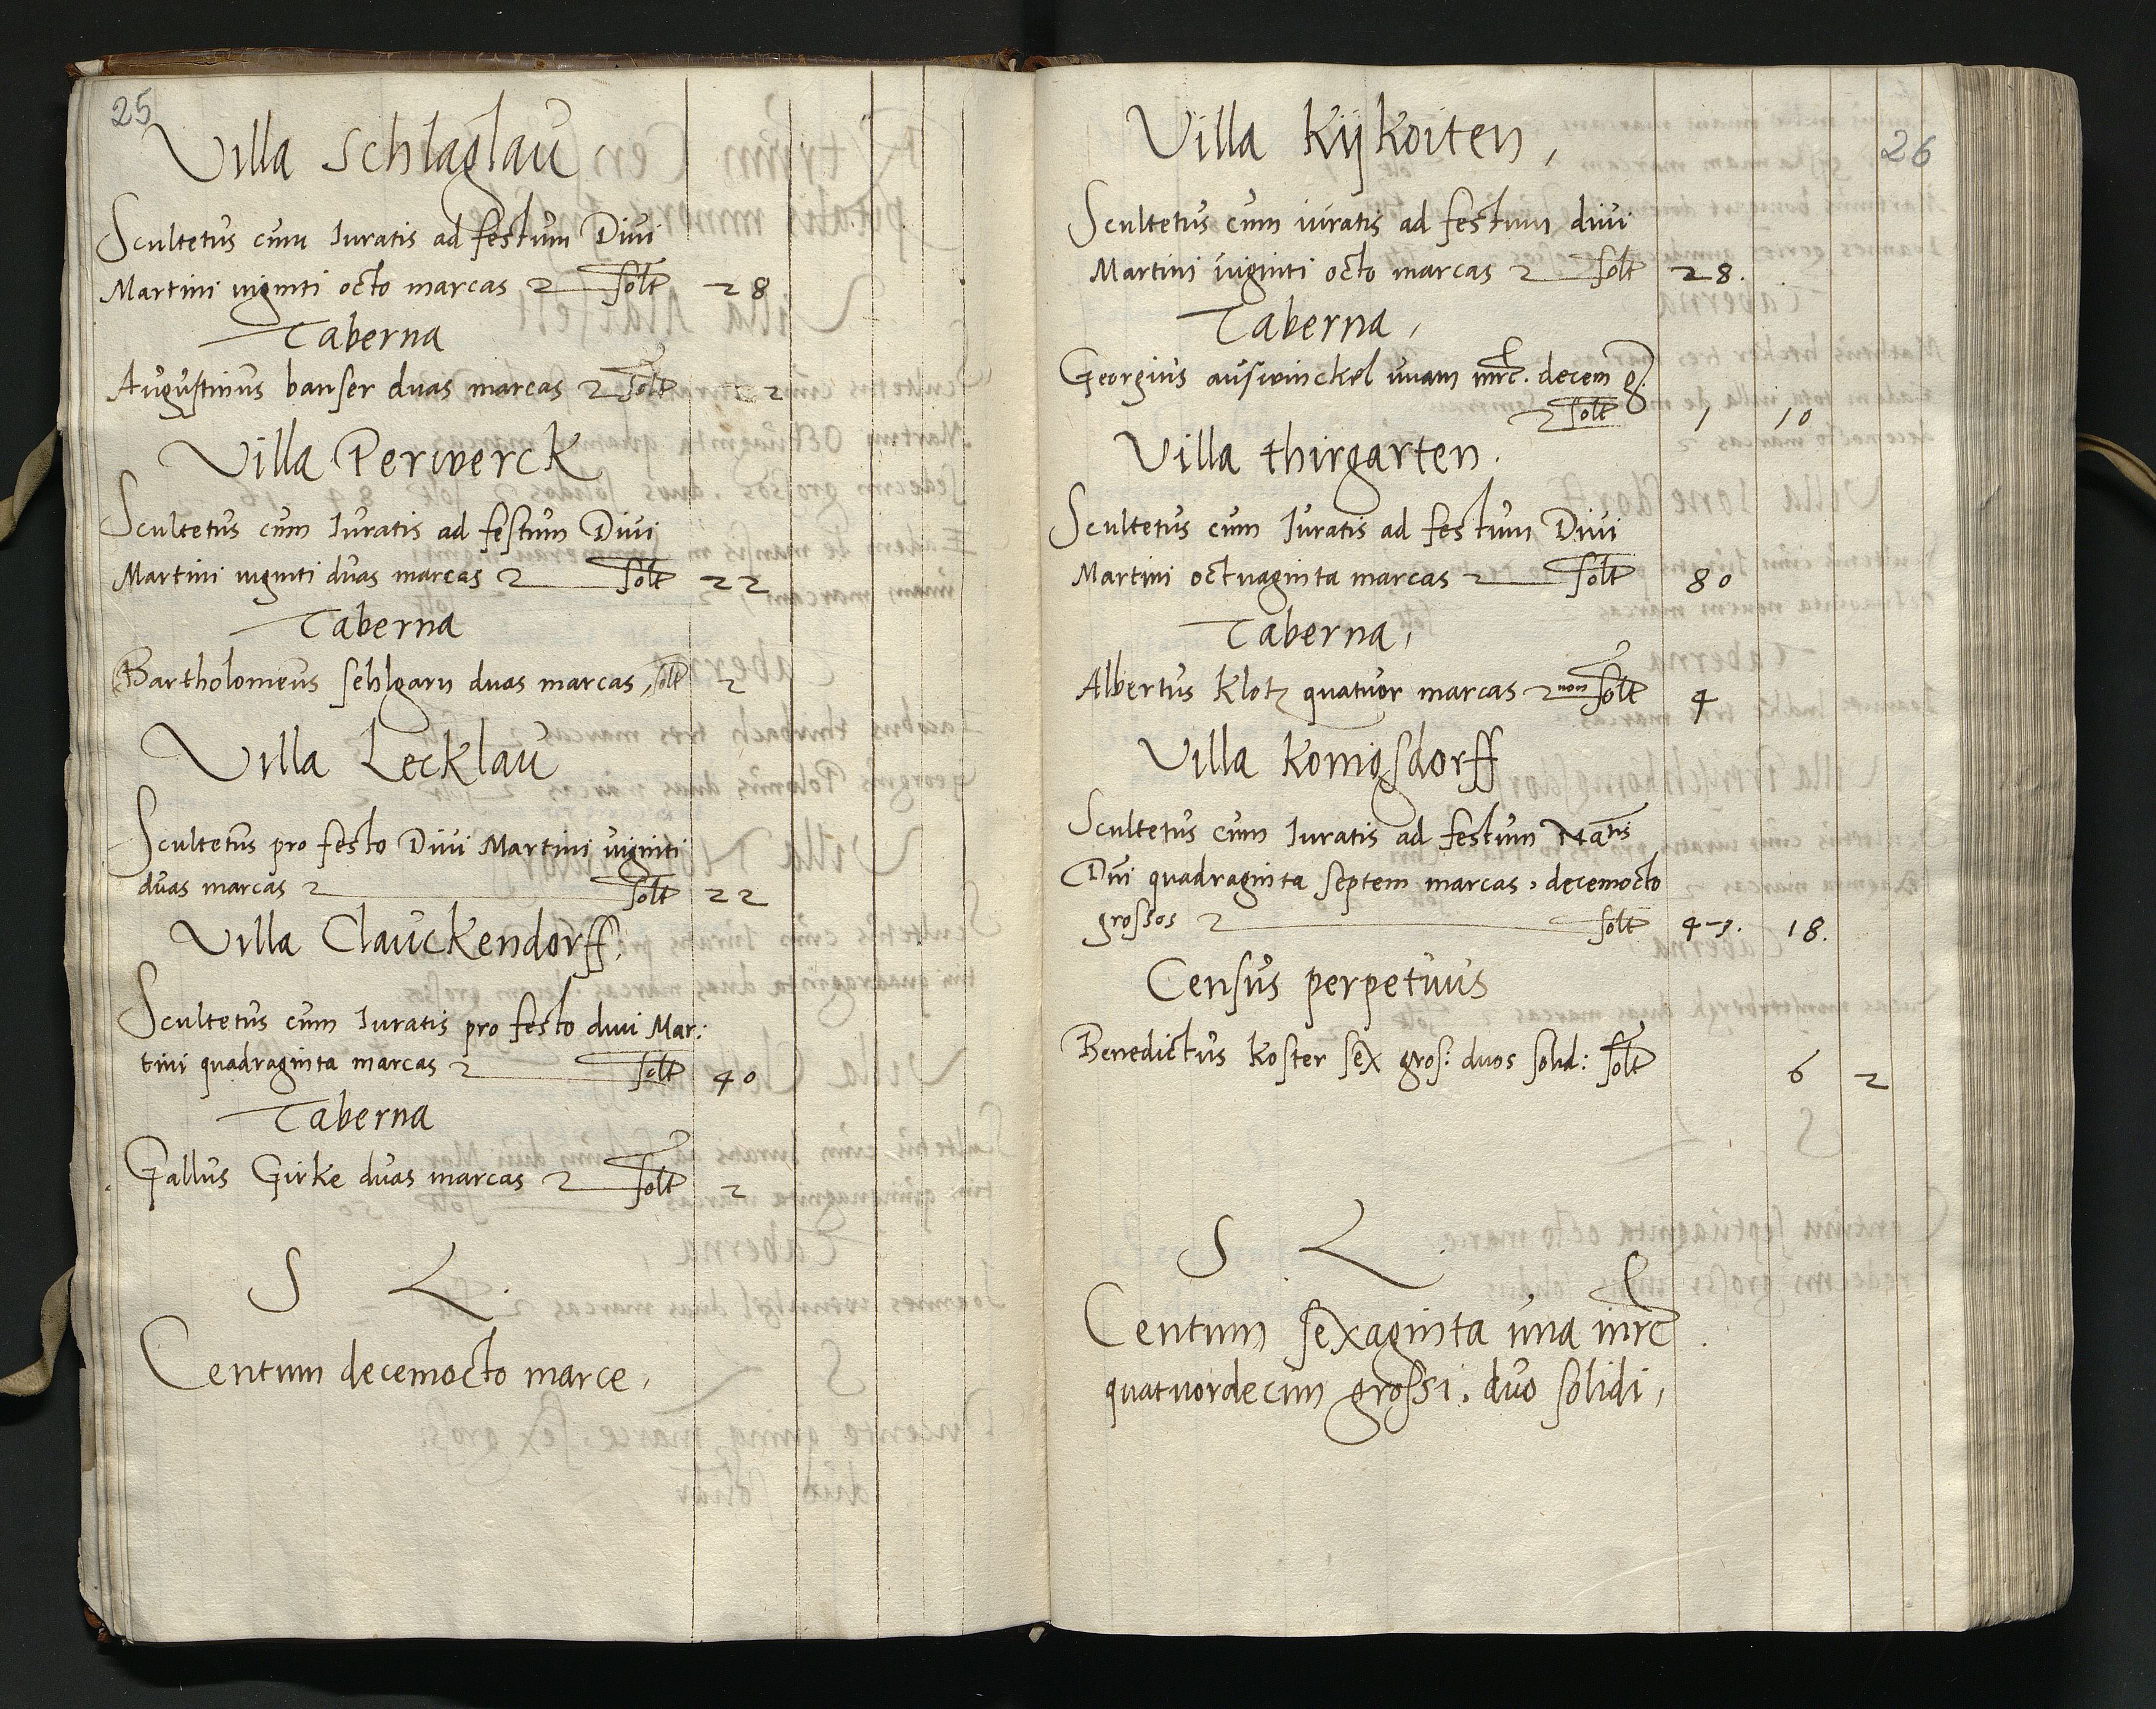 25
Villa Schlaglau
Scultetus cum Iuratis ad festum Divi
Martini viginti octo marcas solt 28
Taberna
Augustinus banser duas marcas solt 2
Villa Perwerck
Scultetus cum Iuratis ad festum Divi
Martini viginti duas marcas solt 22
Taberna
Bartholomeus sehlgarn duas marcas, solt 2
Villa Lecklau
Scultetus pro festo Divi Martini viginti
duas marcas solt 22
Villa Clauckendorff.
Scultetus cum Iuratis pro festo divi Mar:
tini quadraginta marcas solt 40
Taberna
Gallus Girke duas marcas solt 2
S L.
Centum decemocto marce,
26
Villa Kijkoiten,
Scultetus cum iuratis ad festum divi
Martini viginti octo marcas solt 28.
Taberna,
Georgius auswinckel unam mrc. decem g.
solt 1 10
Villa thirgarten.
Scultetus cum Iuratis ad festum Divi
Martini octuaginta marcas solt 80
Taberna,
Albertus Klotz quatuor marcas non solt 4
Villa Konigsdorff
Scultetus cum Iuratis ad festum Natis
Dni quadraginta septem marcas, decemocto
grossos solt 47. 18.
Census perpetuus
Benedictus Koster sex gros: duos solid: solt 6 2
S L.
Centum sexaginta una mrc.
quatuordecim grossi, duo solidi,